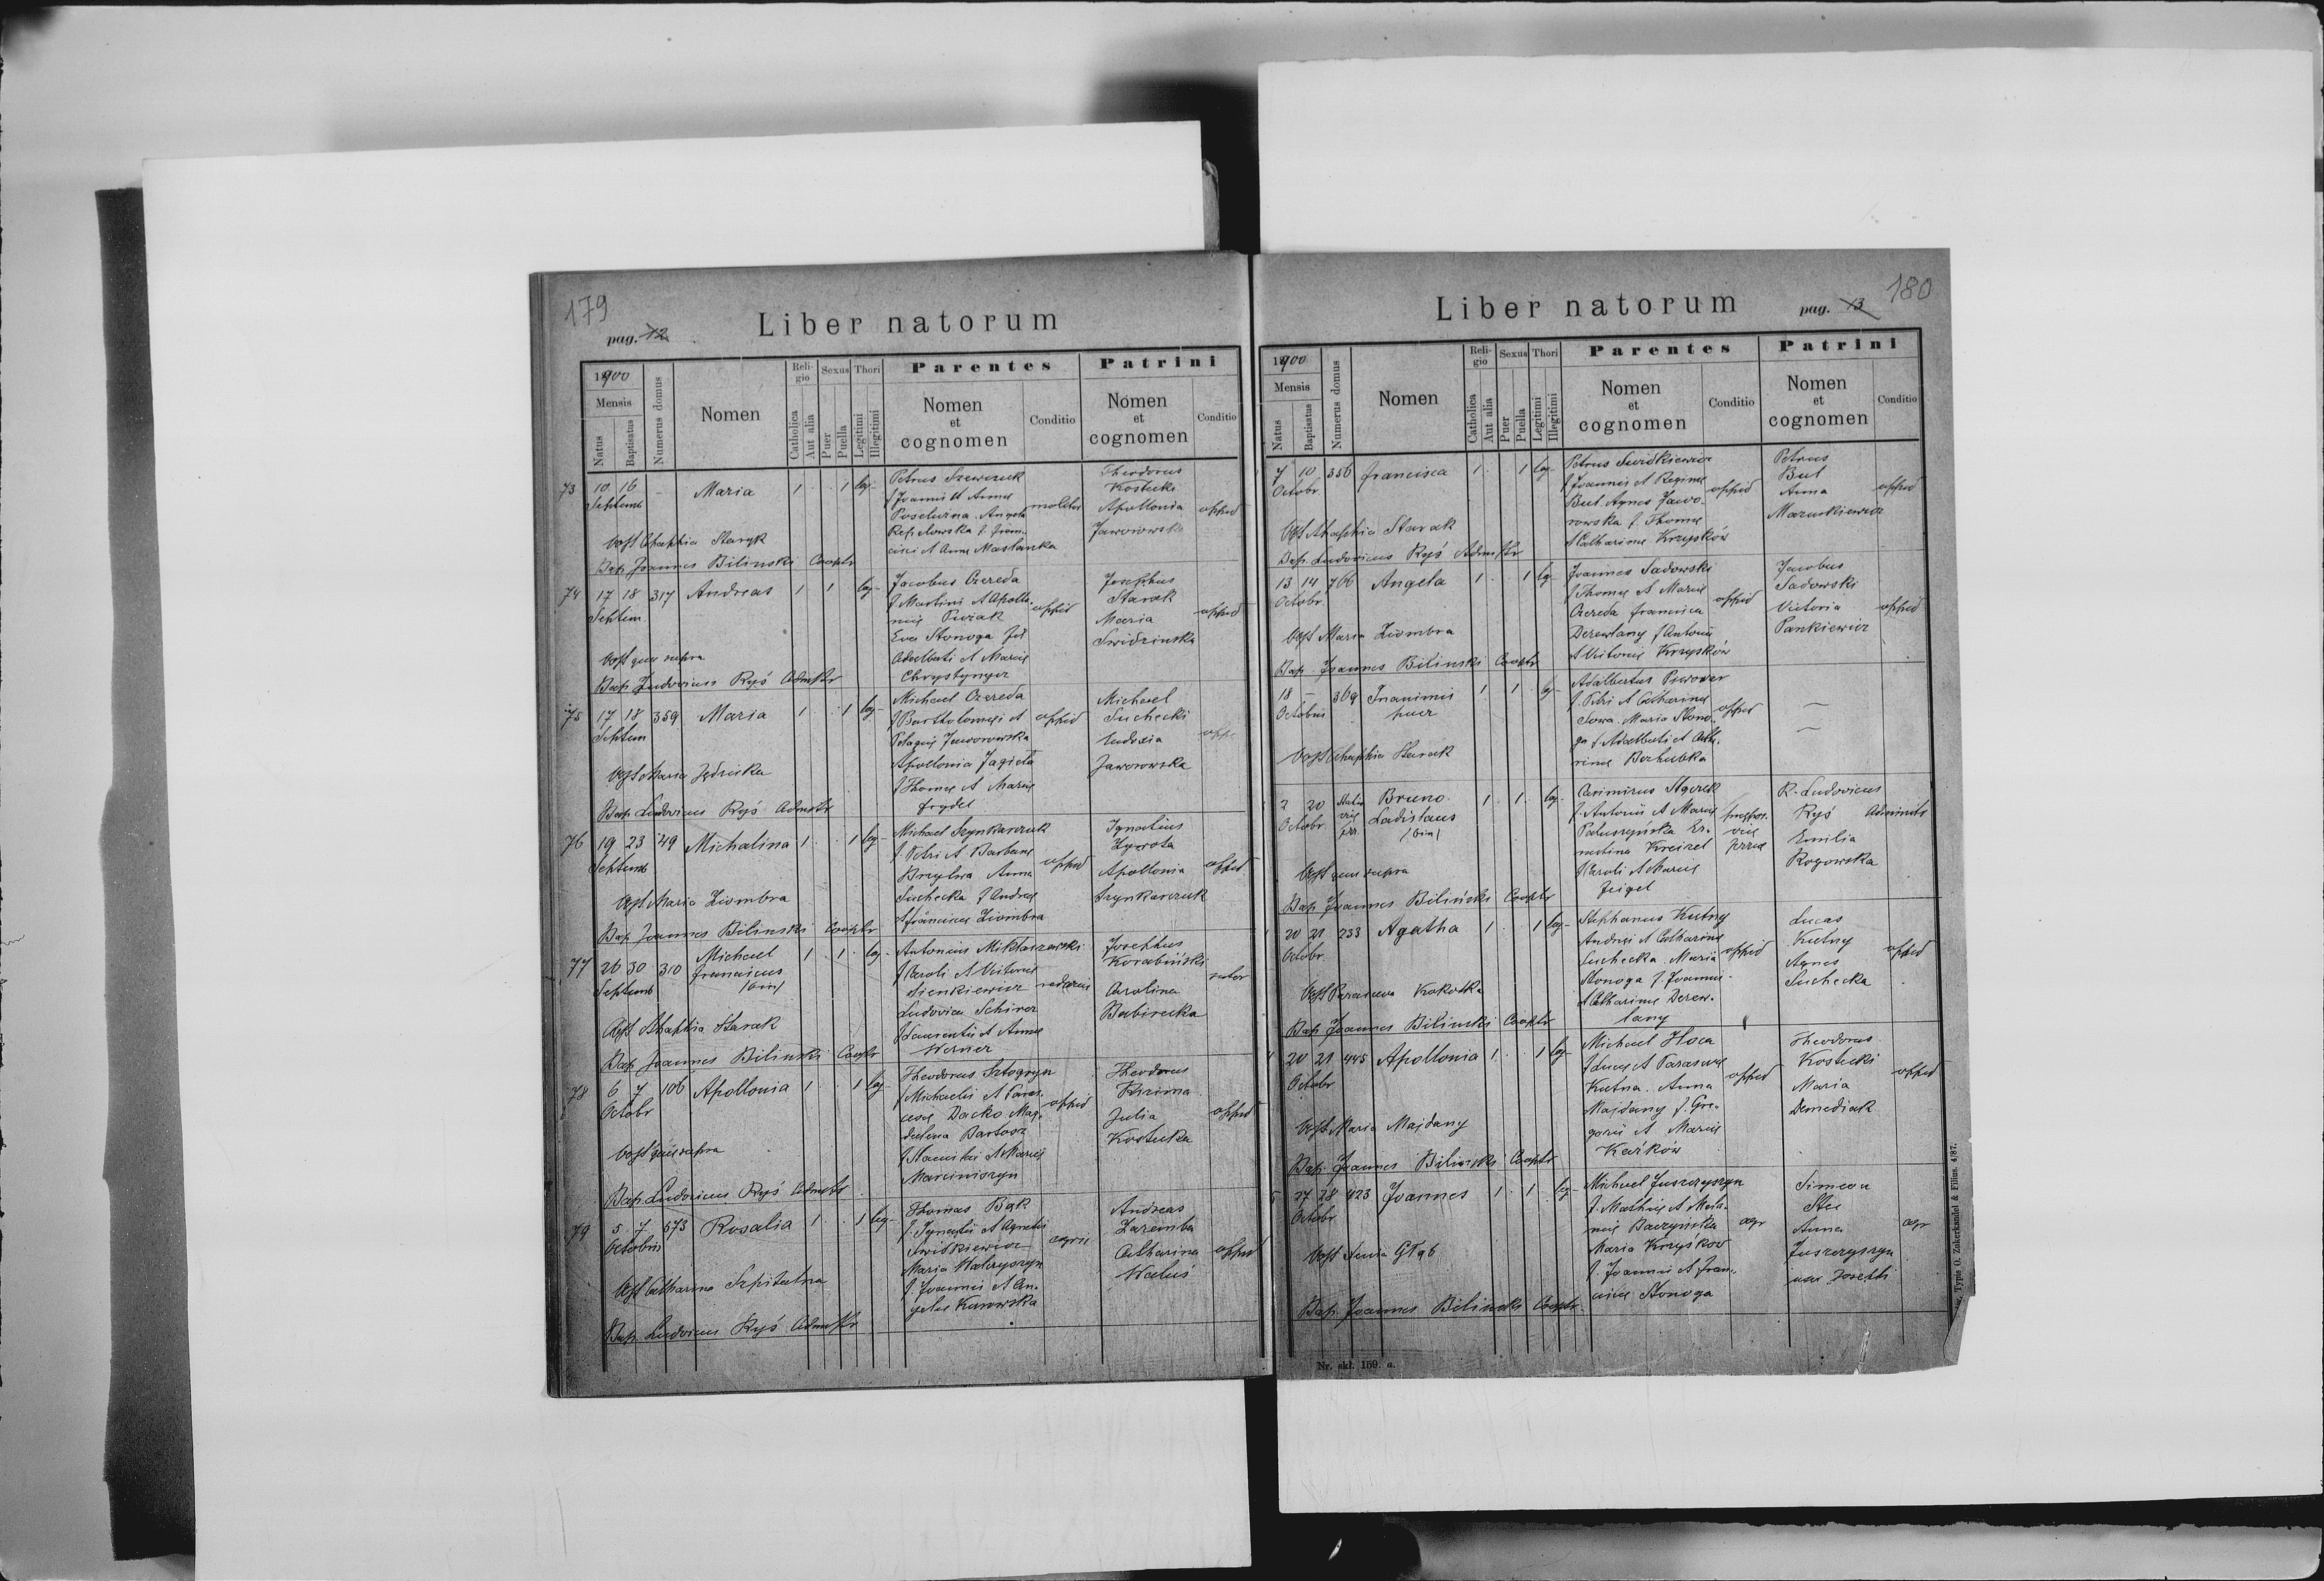 179
pag. 12
Liber natorum
1900
Mensis
Natus
Baptisatus
Numerus domus
Nomen
Religio
Catholica
Aut alia
Sexus
Puer
Puella
Thori
Legitimi
Illegitimi
Parentes
Nomen et cognomen
Conditio
Patrini
Nomen et cognomen
Conditio
73
10 16 - Maria 1 1 leg-
Septemb
Petrus Szewczuk
f Joannis et Annae
Angela
molitor
Theodorus
Kostecki
Apollonia
Jaworowska
oppid
Obst Staryk
Bap. Joannes Bilinski Cooptr
74
17 18 317 Andreas 1 1 leg-
Septem.
Jacobus Czereda
f Martini et Apollo-
niae
Eva Stonoga fil
Adalberti et Mariae
oppid
Josephus
Starak
Maria
Swidzinska
oppid
Obst quae supra
Bap. Ludovicus Ryś Admstr
75
17 18 359 Maria 1 1 leg-
Septem
Michael Czereda
f Bartholomaei et
Pelagiae Jaworowska
Apollonia Jagieła
f Thomae et Mariae
Frydel
oppid
Michael
Suchecki
Eudoxia
Jaworowska
Obst Maria
Bap. Ludovicus Ryś Admstr
76
19 23 49 Michalina 1 1 leg-
Septemb
Michael Szynkarczuk
f Petri et Barbarae
Anna
Suchecka f Andreae
et Franciscae Ziombra
oppid
Ignatius
Zywota
Apollonia
Szynkarczuk
oppid
Obst Maria Ziombra
Bap. Joannes Bilinski Cooptr
77
26 30 310 Michael 1 1 leg-
Septemb
Franciscus
/bin/
Antonius Miklaszewski
f Karoli et Victoriae
Sienkiewicz
Ludovica Schirer
f Laurentii et Annae
Werner
Josephus
Korabiński
Carolina
Babirecka
sutor
Obst Starak
Bap. Joannes Bilinski Cooptr
78
6 7 106 Apollonia 1 1 leg-
Octobr
Theodorus Sztogryn
f Michaelis et Paras-
cevae Dacko. Mag-
dalena Bartosz
f Stanislai et Mariae
Marciniszyn
oppid
Theodorus
Julia
Kostecka
oppid
Obst quae supra
Bap. Ludovicus Ryś Admstr
79
5 7 573 Rosalia 1 1 leg-
Octobris
Thomas Bąk
f. Ignatii et Agnetis
Swidkiewicz
Maria Walczyszyn
f. Joannis et An-
gelae Kurowska
agric
Andreas
Zaremba
Catharina
Waluś
oppid
Obst Catharina Szpitalna
Bap. Ludovicus Ryś Admstr
180
pag. 13
Liber natorum
1900
Mensis
Natus
Baptisatus
Numerus domus
Nomen
Religio
Catholica
Aut alia
Sexus
Puer
Puella
Thori
Legitimi
Illegitimi
Parentes
Nomen et cognomen
Conditio
Patrini
Nomen et cognomen
Conditio
7 10 356 Francisca 1 1 leg-
Octobr
Petrus Swidkiewicz
f Joannis et Reginae
But. Agnes Jawo-
rowska f. Thomae
et Catharinae Krzysków
oppid
Petrus
But
Anna
Mazurkiewicz
oppid
Obst Starak
Bap. Ludovicus Ryś Admstr
13 14 766 Angela 1 1 leg-
Octobr
Joannes Sadowski
f Thomae et Mariae
Czereda Francisca
Derewlany f Antonii
et Victoriae Krzysków
oppid
Jacobus
Sadowski
Victoria
Pankiewicz
oppid
Obst Maria Ziombra
Bap. Joannes Bilinski Cooptr
18 - 369 Inanimis 1 1 leg-
Octobris
puer
Adalbertus Piwowar
f. Petri et Catharinae
Sowa. Maria Stono-
ga f. Adalberti et Catha-
rinae
oppid
Obst Starak
2 20 Bruno 1 1 leg-
Octobr
Ladislaus
/bin/
Casimirus
f. Antonii et Mariae
Er-
nestina Kreizel
f Karoli et Mariae
Zeigel
R. Ludovicus
Ryś Administr
Emilia
Rogowska
Obst quae supra
Bap. Joannes Biliński Cooptr
20 21 233 Agatha 1 1 leg-
Octobr
Stephanus Kutny
Andreae et Catharinae
Suchecka. Maria
Stonoga f. Joannis
et Catharinae Derew-
lany
oppid
Lucas
Kutny
Agnes
Suchecka
oppid
Obst Parasceva Kokotka
Bap. Joannes Bilinski Cooptr
20 21 445 Apollonia 1 1 leg
Octobr
Michael Hoca
f Lucae et Parascevae
Kutna. Anna
Majdany f. Gre-
gorii et Mariae
Karków
oppid
Theodorus
Kostecki
Maria
Demediak
oppid
Obst Maria Majdany
Bap. Joannes Bilinski Cooptr
27 28 423 Joannes 1 1 leg-
Octobr
Michael Juszczyszyn
f. Mathiae et Mela-
niae Baczyńska
Maria Krzyskow
f. Joannis et Fran-
ciscae Stonoga
agr
Simeon
Stec
Anna
Juszczyszyn
uxor Josephi
agr
Obst Anna Głąb
Bap. Joannes Bilinski Cooptr.
Nr. skł. 159. a.
Typis O. Zukerkandel & Filius. 4/87.